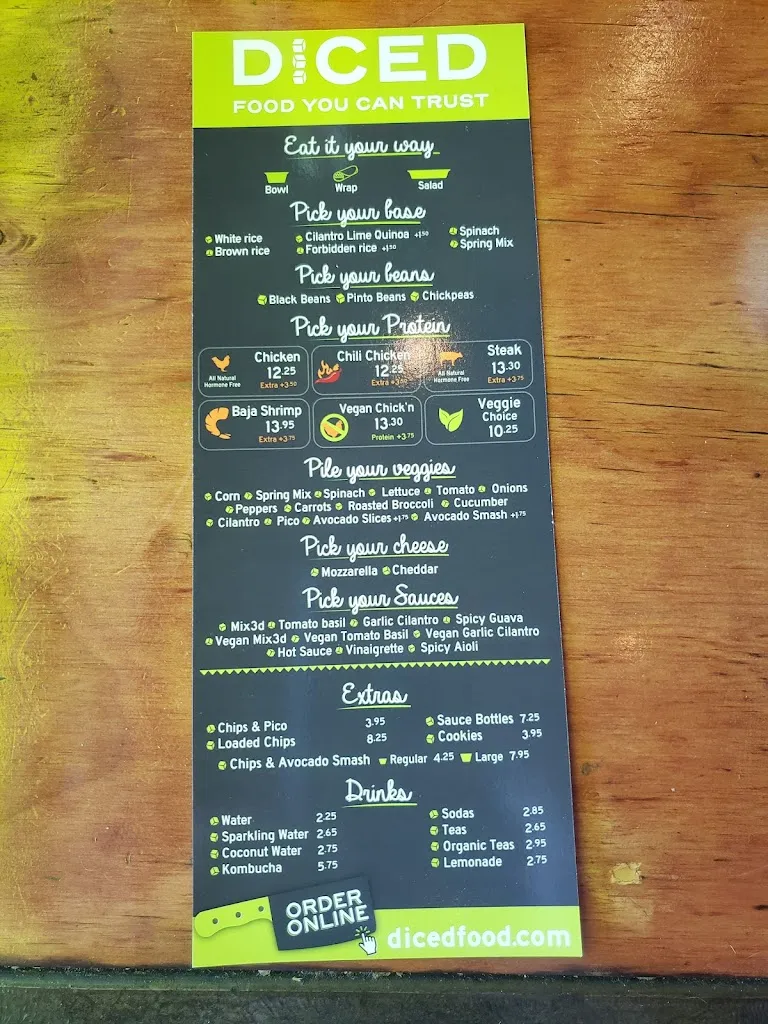 DICED
FOOD YOU CAN TRUST
Eat it your way
Bowl Wrap Salad
Pick your base
White rice Cilantro Lime Quinoa +1.50 Spinach
Brown rice Forbidden rice +1.50 Spring Mix
Pick your beans
Black Beans Pinto Beans Chickpeas
Pick your Protein
Chicken
12.25
All Natural
Hormone Free
Extra +3.50
Chili Chicken
12.25
Extra
Steak
13.30
All Natural
Hormone Free
Extra +3.75
Baja Shrimp
13.95
Extra +3.75
Vegan Chick'n
13.30
Protein +3.75
Veggie
Choice
10.25
Pile your veggies
Corn Spring Mix Spinach Lettuce Tomato Onions
Peppers Carrots Roasted Broccoli Cucumber
Cilantro Pico Avocado Slices +1.75 Avocado Smash +1.75
Pick your cheese
Mozzarella Cheddar
Pick your Sauces
Mix3d Tomato basil Garlic Cilantro Spicy Guava
Vegan Mix3d Vegan Tomato Basil Vegan Garlic Cilantro
Hot Sauce Vinaigrette Spicy Aioli
Extras
Chips & Pico 3.95 Sauce Bottles 7.25
Loaded Chips 8.25 Cookies 3.95
Chips & Avocado Smash Regular 4.25 Large 7.95
Drinks
Water 2.25 Sodas 2.85
Sparkling Water 2.65 Teas 2.65
Coconut Water 2.75 Organic Teas 2.95
Kombucha 5.75 Lemonade 2.75
ORDER
ONLINE
dicedfood.com